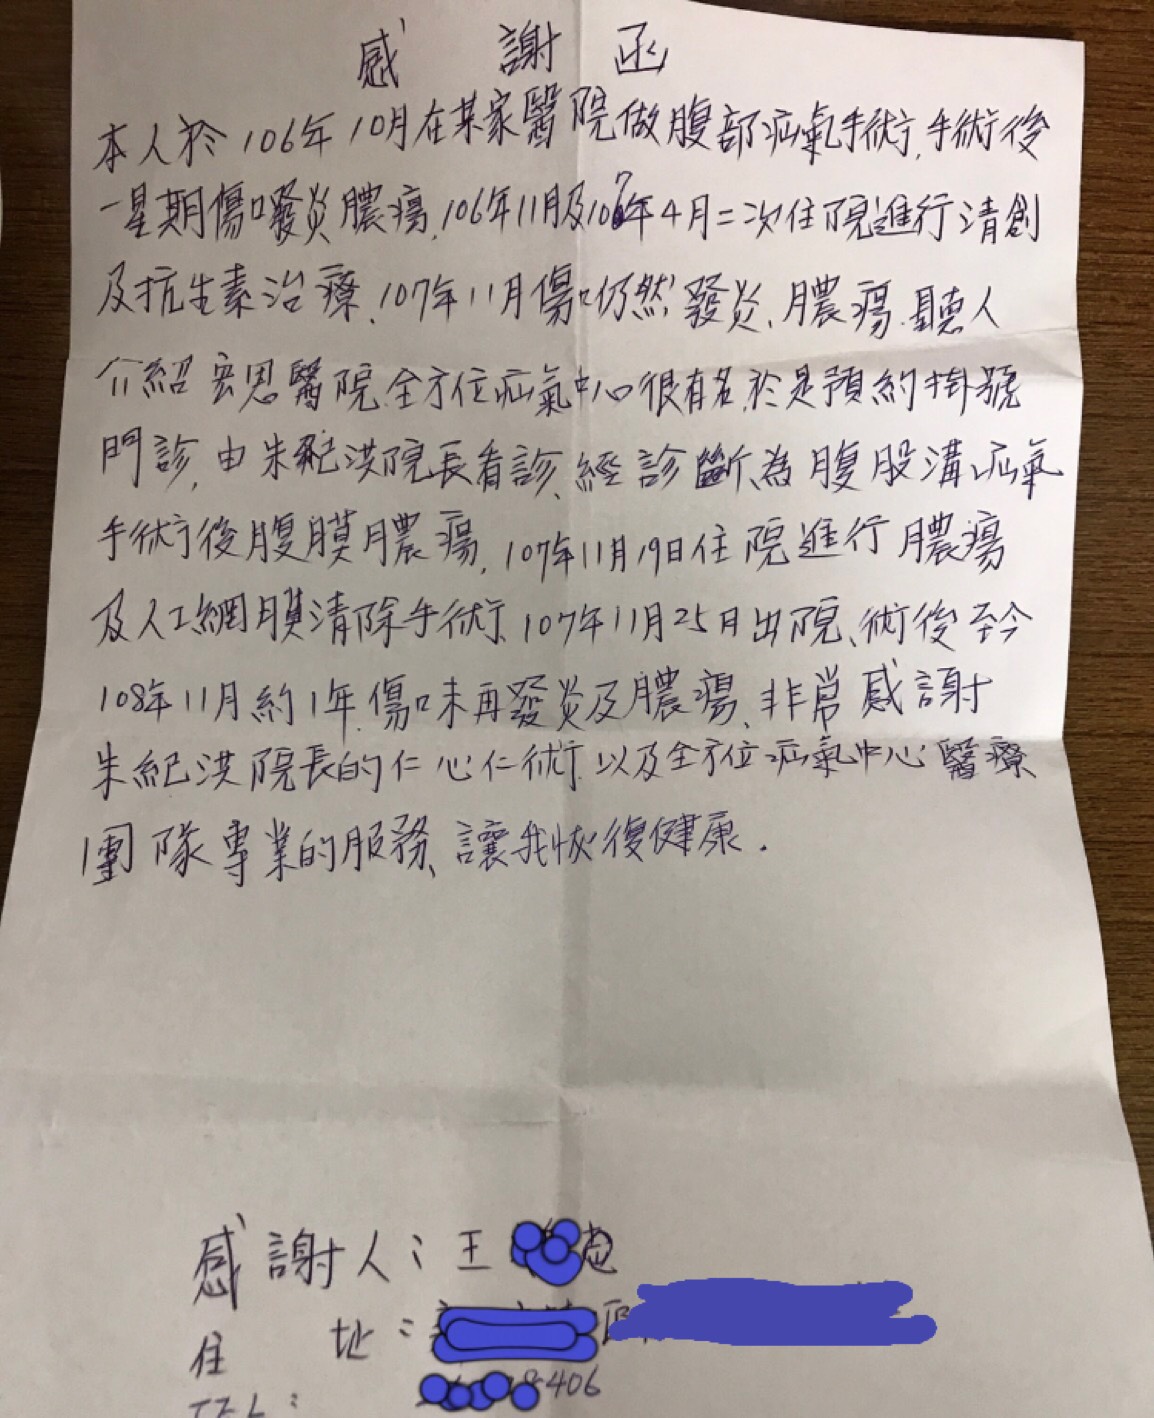 感謝函
本人於106年10月在某家醫院做腹部疝氣手術,手術後
一星期傷口發炎膿瘍,106年11月及107年4月二次住院進行清創
及抗生素治療,107年11月傷口仍然發炎、膿瘍.聽人
介紹宏恩醫院全方位疝氣中心很有名,於是預約掛號
門診,由朱紀洪院長看診、經診斷為腹股溝疝氣
手術後腹膜膿瘍,107年11月19日住院進行膿瘍
及人工網膜清除手術、107年11月25日出院、術後至今
108年11月約1年,傷口未再發炎及膿瘍、非常感謝
朱紀洪院長的仁心仁術,以及全方位疝氣中心醫療
團隊專業的服務、讓我恢復健康.
感謝人:王
住址: 區
TEL: 8406